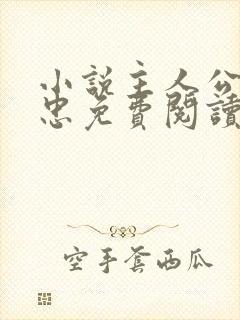 小說主人公
忠免費閱讀
空手套西瓜